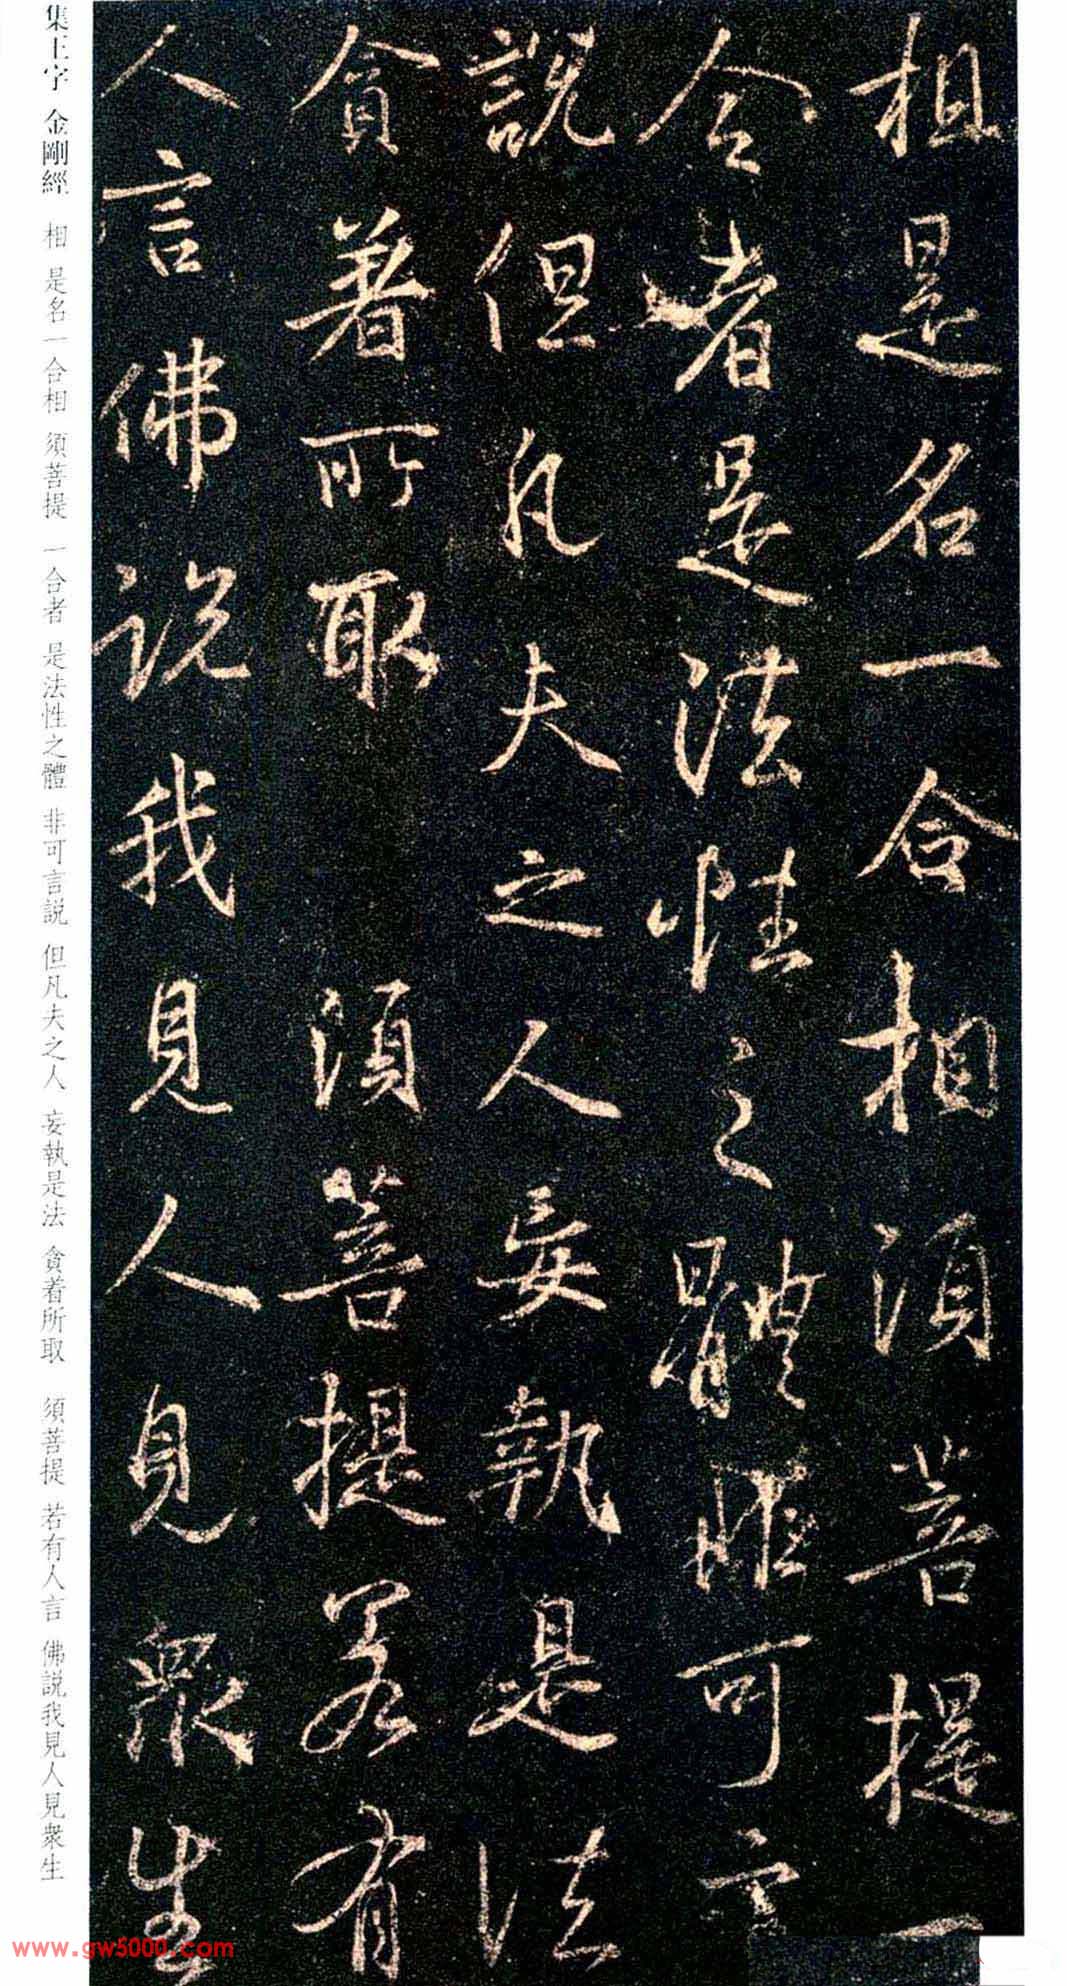 相是名一合相須菩提一
合者是法性之體非可言
說但凡夫之人妄執是法
貪著所取　須菩提若有
人言佛說我見人見眾生
集王字 金剛經 相 是名一合相 須菩提 一合者 是法性之體 非可言說 但凡夫之人 妄執是法 貪着所取 須菩提 若有人言 佛說我見人見衆生
www.gw5000.com